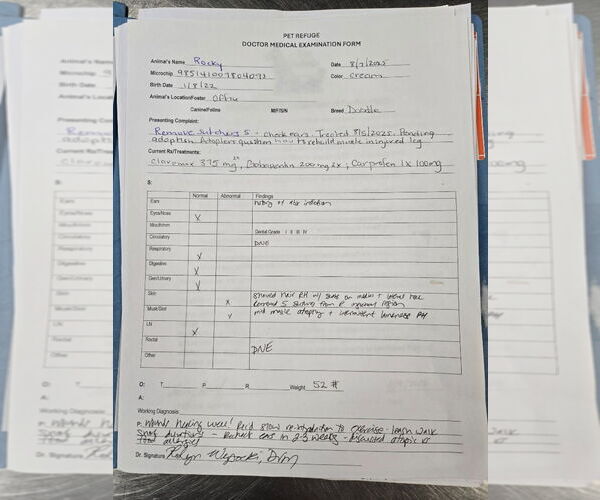 PET REFUGE
DOCTOR MEDICAL EXAMINATION FORM
Animal's Name Rocky Date 8/7/2025
Microchip 985141007804092 Color cream
Birth Date 1/8/22
Animal's Location/Foster Office
Canine/Feline M/F/S/N Breed Doodle
Presenting Complaint:
Remove sutures - check ears. Treated 8/5/2025. Pending
adoption. Adopters question how to rebuild muscle in injured leg
Current Rx/Treatments:
Clavamox 375 mg 2x, Gabapentin 200 mg 2x, Carprofen 1x 100mg
S:
Normal Abnormal Findings
Ears history of ear infection
Eyes/Nose X
Mouth/mm Dental Grade I II III IV
Circulatory DNE
Respiratory X
Digestive X
Gen/Urinary X
Skin X shaved hair RH w/ scabs on medial + lateral
removed 5 sutures from R inguinal region
Musk/Skel X mild muscle atrophy + intermittent lameness RH
LN X
Rectal DNE
Other
O: T P R Weight 52 #
A:
Working Diagnosis
P: Wounds healing well! Rec'd slow reintroduction to exercise - leash walk
short durations - Recheck ears in 2-3 weeks - Discussed atopic vs
food allergies
Dr. Signature DVM